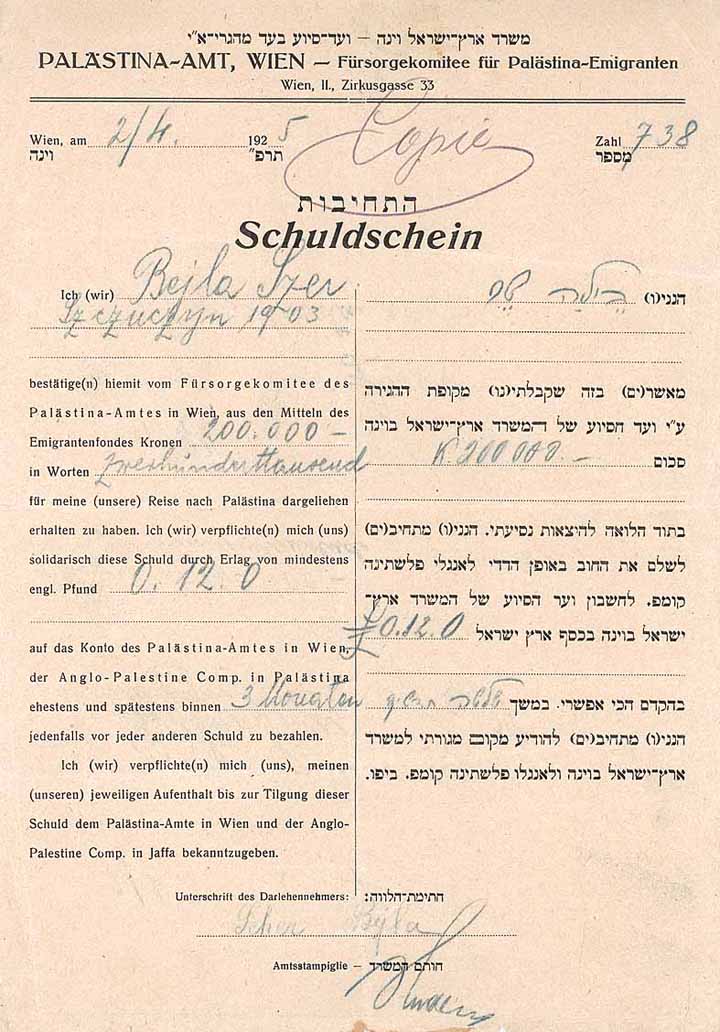 משרד ארץ־ישראל וינה — ועד־סיוע בעד מהגרי־א"י
PALÄSTINA-AMT, WIEN — Fürsorgekomitee für Palästina-Emigranten
Wien, II., Zirkusgasse 33
Wien, am 2/4. 1925 Copie Zahl 738
וינה תרפ" מספר
התחיבות
Schuldschein
Ich (wir) Bejla Szer
Szczuczyn 1903
bestätige(n) hiemit vom Fürsorgekomitee des
Palästina-Amtes in Wien, aus den Mitteln des
Emigrantenfondes Kronen 200.000 —
in Worten zweihunderttausend
für meine (unsere) Reise nach Palästina dargeliehen
erhalten zu haben. Ich (wir) verpflichte(n) mich (uns)
solidarisch diese Schuld durch Erlag von mindestens
engl. Pfund 0. 12. 0
auf das Konto des Palästina-Amtes in Wien,
der Anglo-Palestine Comp. in Palästina
ehestens und spätestens binnen 3 Monaten
jedenfalls vor jeder anderen Schuld zu bezahlen.
Ich (wir) verpflichte(n) mich (uns), meinen
(unseren) jeweiligen Aufenthalt bis zur Tilgung dieser
Schuld dem Palästina-Amte in Wien und der Anglo-
Palestine Comp. in Jaffa bekanntzugeben.
הנני(ו) בילה שר
מאשר(ים) בזה שקבלתי(נו) מקופת ההגירה
ע"י ועד הסיוע של ה־המשרד ארץ־ישראל בוינה
סכום K 200 000. —
בתוד הלואה להיצאות נסיעתי. הנני(ו) מתחיב(ים)
לשלם את החוב באופן הדדי לאנגלי פלשתינה
קומפ. לחשבון וער הסיוע של המשרד ארץ־
ישראל בוינה בכסף ארץ ישראל £ 0. 12. 0
בהקדם הכי אפשרי. במשך שלשה
הנני(ו) מתחיב(ים) להודיע מקום מגורתי למשרד
ארץ־ישראל בוינה ולאנגלו פלשתינה קומפ. ביפו.
Unterschrift des Darlehennehmers: חתימת־הלווה:
Scher Bejla
Amtsstampiglie — חותם המשרד